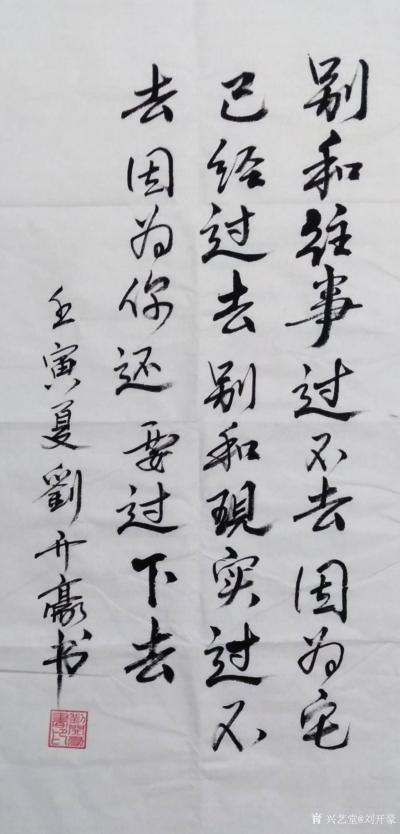 别和往事过不去因为它
已经过去别和現实过不
去因为你还要过下去
壬寅夏劉开豪书
兴艺堂@刘开豪